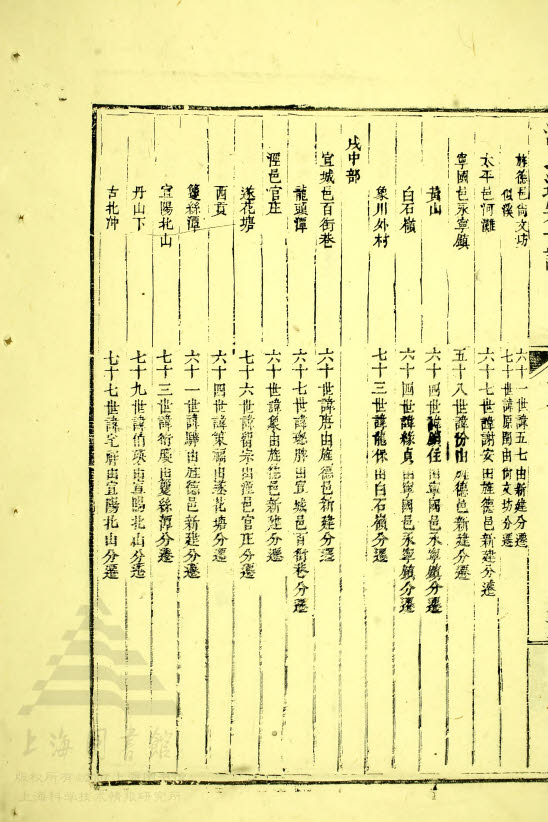 旌德邑尙文坊 六十一世諱五七由新建分遷
似溪 七十世諱原閏由尙文坊分遷
太平邑河灘 六十七世諱謝安由旌德邑新建分遷
寧國邑永寧鎭 五十八世諱份由旌德邑新建分遷
黃山 六十四世諱顯任由寧國邑永寧鎭分遷
白石嶺 六十四世諱緣貞由寧國邑永寧鎭分遷
象川外村 七十三世諱龍保由白石嶺分遷
戌中部
宣城邑百街巷 六十世諱唐由旌德邑新建分遷
龍頭潭 六十七世諱勝由宣城邑百街巷分遷
涇邑官庄 六十世諱象由旌德邑新建分遷
遂花塘 七十六世諱宗由涇邑官庄分遷
西貢 六十四世諱策福由遂花塘分遷
簍絲潭 六十一世諱驊由旌德邑新建分遷
宣陽北山 七十三世諱衍慶由簍絲潭分遷
丹山下 七十九世諱伯琰由宣陽北山分遷
古北冲 七十七世諱宅由宣陽北山分遷
上海圖書館
版权所有
上海科学技术情报研究所